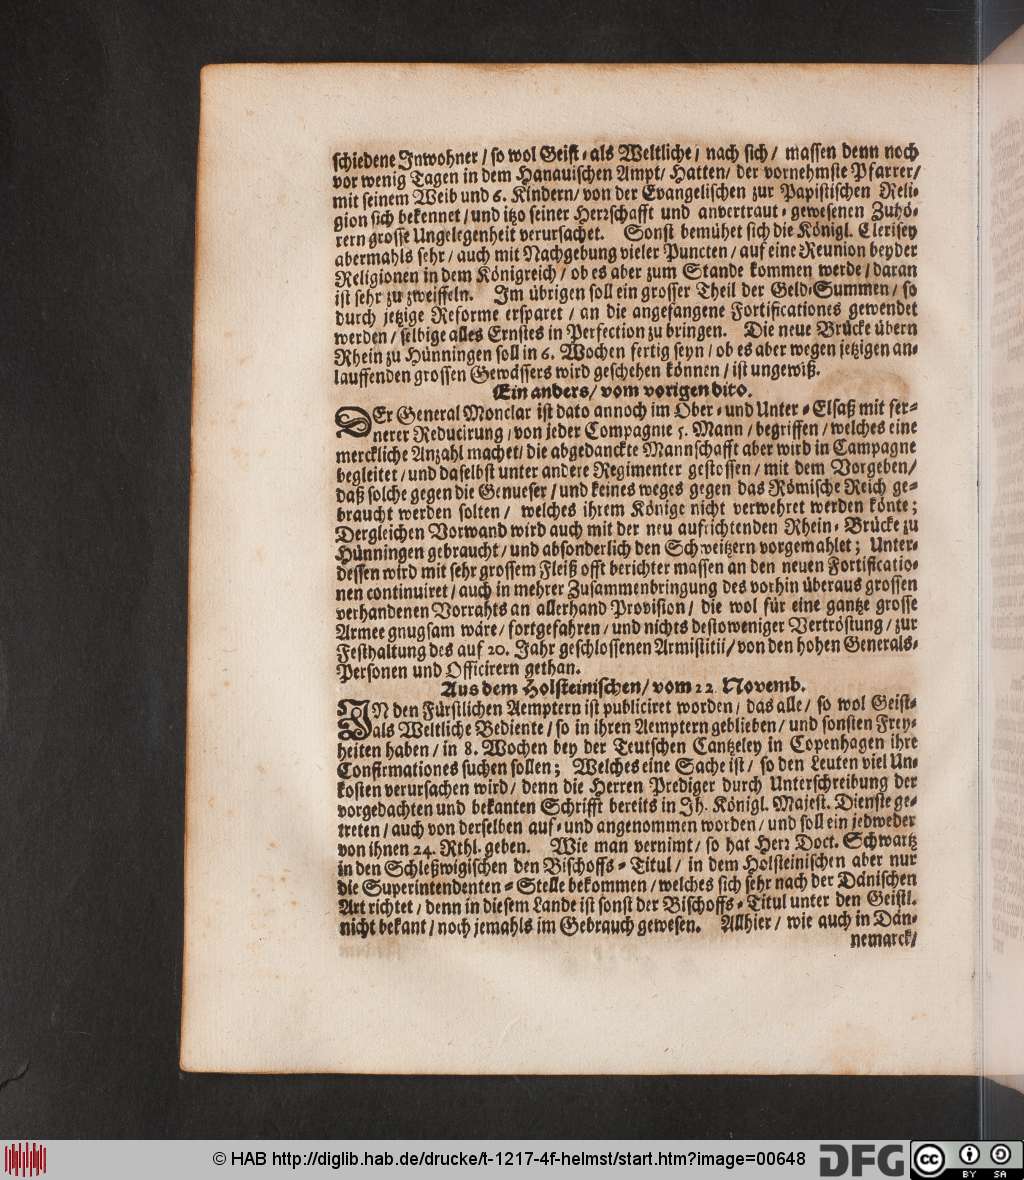 schiedene Inwohner / so wol Geist- als Weltliche / nach sich / massen denn noch
vor wenig Tagen in dem Hanauischen Ampt / Hatten / der vornehmste Pfarrer /
mit seinem Weib und 6. Kindern / von der Evangelischen zur Papistischen Reli-
gion sich bekennet / und itzo seiner Herrschafft und anvertraut-gewesenen Zuhö-
rern grosse Ungelegenheit verursachet. Sonst bemühet sich die Königl. Clerisey
abermahls sehr / auch mit Nachgebung vieler Puncten / auf eine Reunion beyder
Religionen in dem Königreich / ob es aber zum Stande kommen werde / daran
ist sehr zu zweiffeln. Im übrigen soll ein grosser Theil der Geld-Summen / so
durch jetzige Reforme ersparet / an die angefangene Fortificationes gewendet
werden / selbige alles Ernstes in Perfection zu bringen. Die neue Brücke übern
Rhein zu Hünningen soll in 6. Wochen fertig seyn / ob es aber wegen jetzigen an-
lauffenden grossen Gewässers wird geschehen können / ist ungewiß.
Ein anders / vom vorigen dito.
DEr General Monclar ist dato annoch im Ober- und Unter-Elsaß mit fer-
nerer Reducirung / von jeder Compagnie 5. Mann / begriffen / welches eine
merckliche Anzahl machet / die abgedanckte Mannschafft aber wird in Campagne
begleitet / und daselbst unter andere Regimenter gestossen / mit dem Vorgeben /
daß solche gegen die Genueser / und keines weges gegen das Römische Reich ge-
braucht werden solten / welches ihrem Könige nicht verwehret werden könte;
Dergleichen Vorwand wird auch mit der neu aufrichtenden Rhein-Brücke zu
Hünningen gebraucht / und absonderlich den Schweitzern vorgemahlet; Unter-
dessen wird mit sehr grossem Fleiß offt berichter massen an den neuen Fortificatio-
nen continuiret / auch in mehrer Zusammenbringung des vorhin überaus grossen
verhandenen Vorrahts an allerhand Provision / die wol für eine gantze grosse
Armee gnugsam wäre / fortgefahren / und nichts destoweniger Vertröstung / zur
Festhaltung des auf 20. Jahr geschlossenen Armistitii / von den hohen Generals-
Personen und Officirern gethan.
Aus dem Holsteinischen / vom 22 Novemb.
IN den Fürstlichen Aemptern ist publiciret worden / das alle / so wol Geist-
als Weltliche Bediente / so in ihren Aemptern geblieben / und sonsten Frey-
heiten haben / in 8. Wochen bey der Teutschen Cantzeley in Copenhagen ihre
Confirmationes suchen sollen; Welches eine Sache ist / so den Leuten viel Un-
kosten verursachen wird / denn die Herren Prediger durch Unterschreibung der
vorgedachten und bekanten Schrifft bereits in Jh. Königl. Majest. Dienste ge-
treten / auch von derselben auf- und angenommen worden / und soll ein jedweder
von ihnen 24. Rthl. geben. Wie man vernimt / so hat Herr Doct. Schwartz
in den Schleßwigischen den Bischoffs-Titul / in dem Holsteinischen aber nur
die Superintendenten-Stelle bekommen / welches sich sehr nach der Dänischen
Art richtet / denn in diesem Lande ist sonst der Bischoffs-Titul unter den Geistl.
nicht bekant / noch jemahls im Gebrauch gewesen. Allhier / wie auch in Dän-
nemarck /
© HAB http://diglib.hab.de/drucke/t-1217-4f-helmst/start.htm?image=00648
DFG
cc BY SA